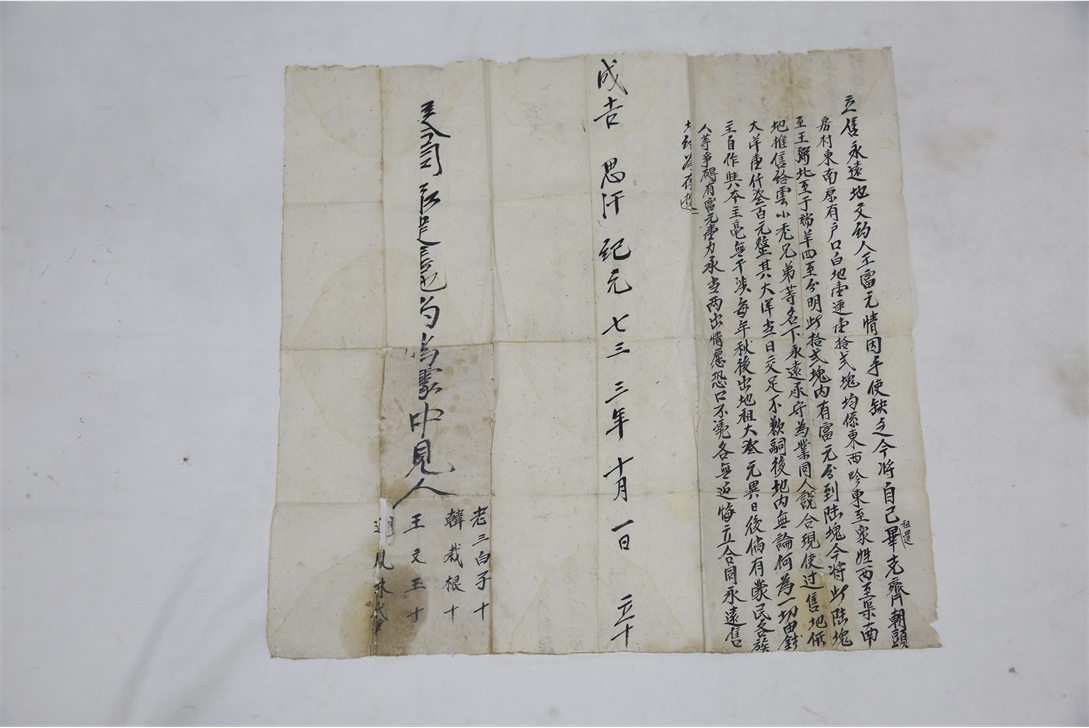 立售永遠地文約人王富元情因手使缺乏今將自己畢克齊朝頭
祖遺
房村東南原有戶口白地壹連壹拾弍塊均係東西畛東至眾姓西至渠南
至王弼北至于瑞羊四至分明此拾弍塊內有富元分到陸塊今將此陸塊
地推售給雲小禿兄弟等名下永遠承守為業同人說合現使过售地價
大洋壹仟叁百元整其大洋当日交足不歉嗣後地內無論何為一切由錢
主自作與本主毫無干涉每年秋後出地租大叁元異日後倘有蒙民各族
人等爭碍有富元壹力承当两出情愿恐口不凴各無返悔立合同永遠售
成吉 思汗 紀元 七三三年 十月 一日 立十
中見人
老三白子十
韓栽根十
王文王十